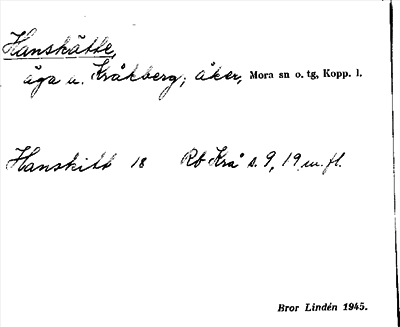 Hanskätte,
äga u. Kråkberg, åker, Mora sn o. tg, Kopp. l.
Hanskitt 18 Rb Krå s. 9, 19 m. fl.
Bror Lindén 1945.